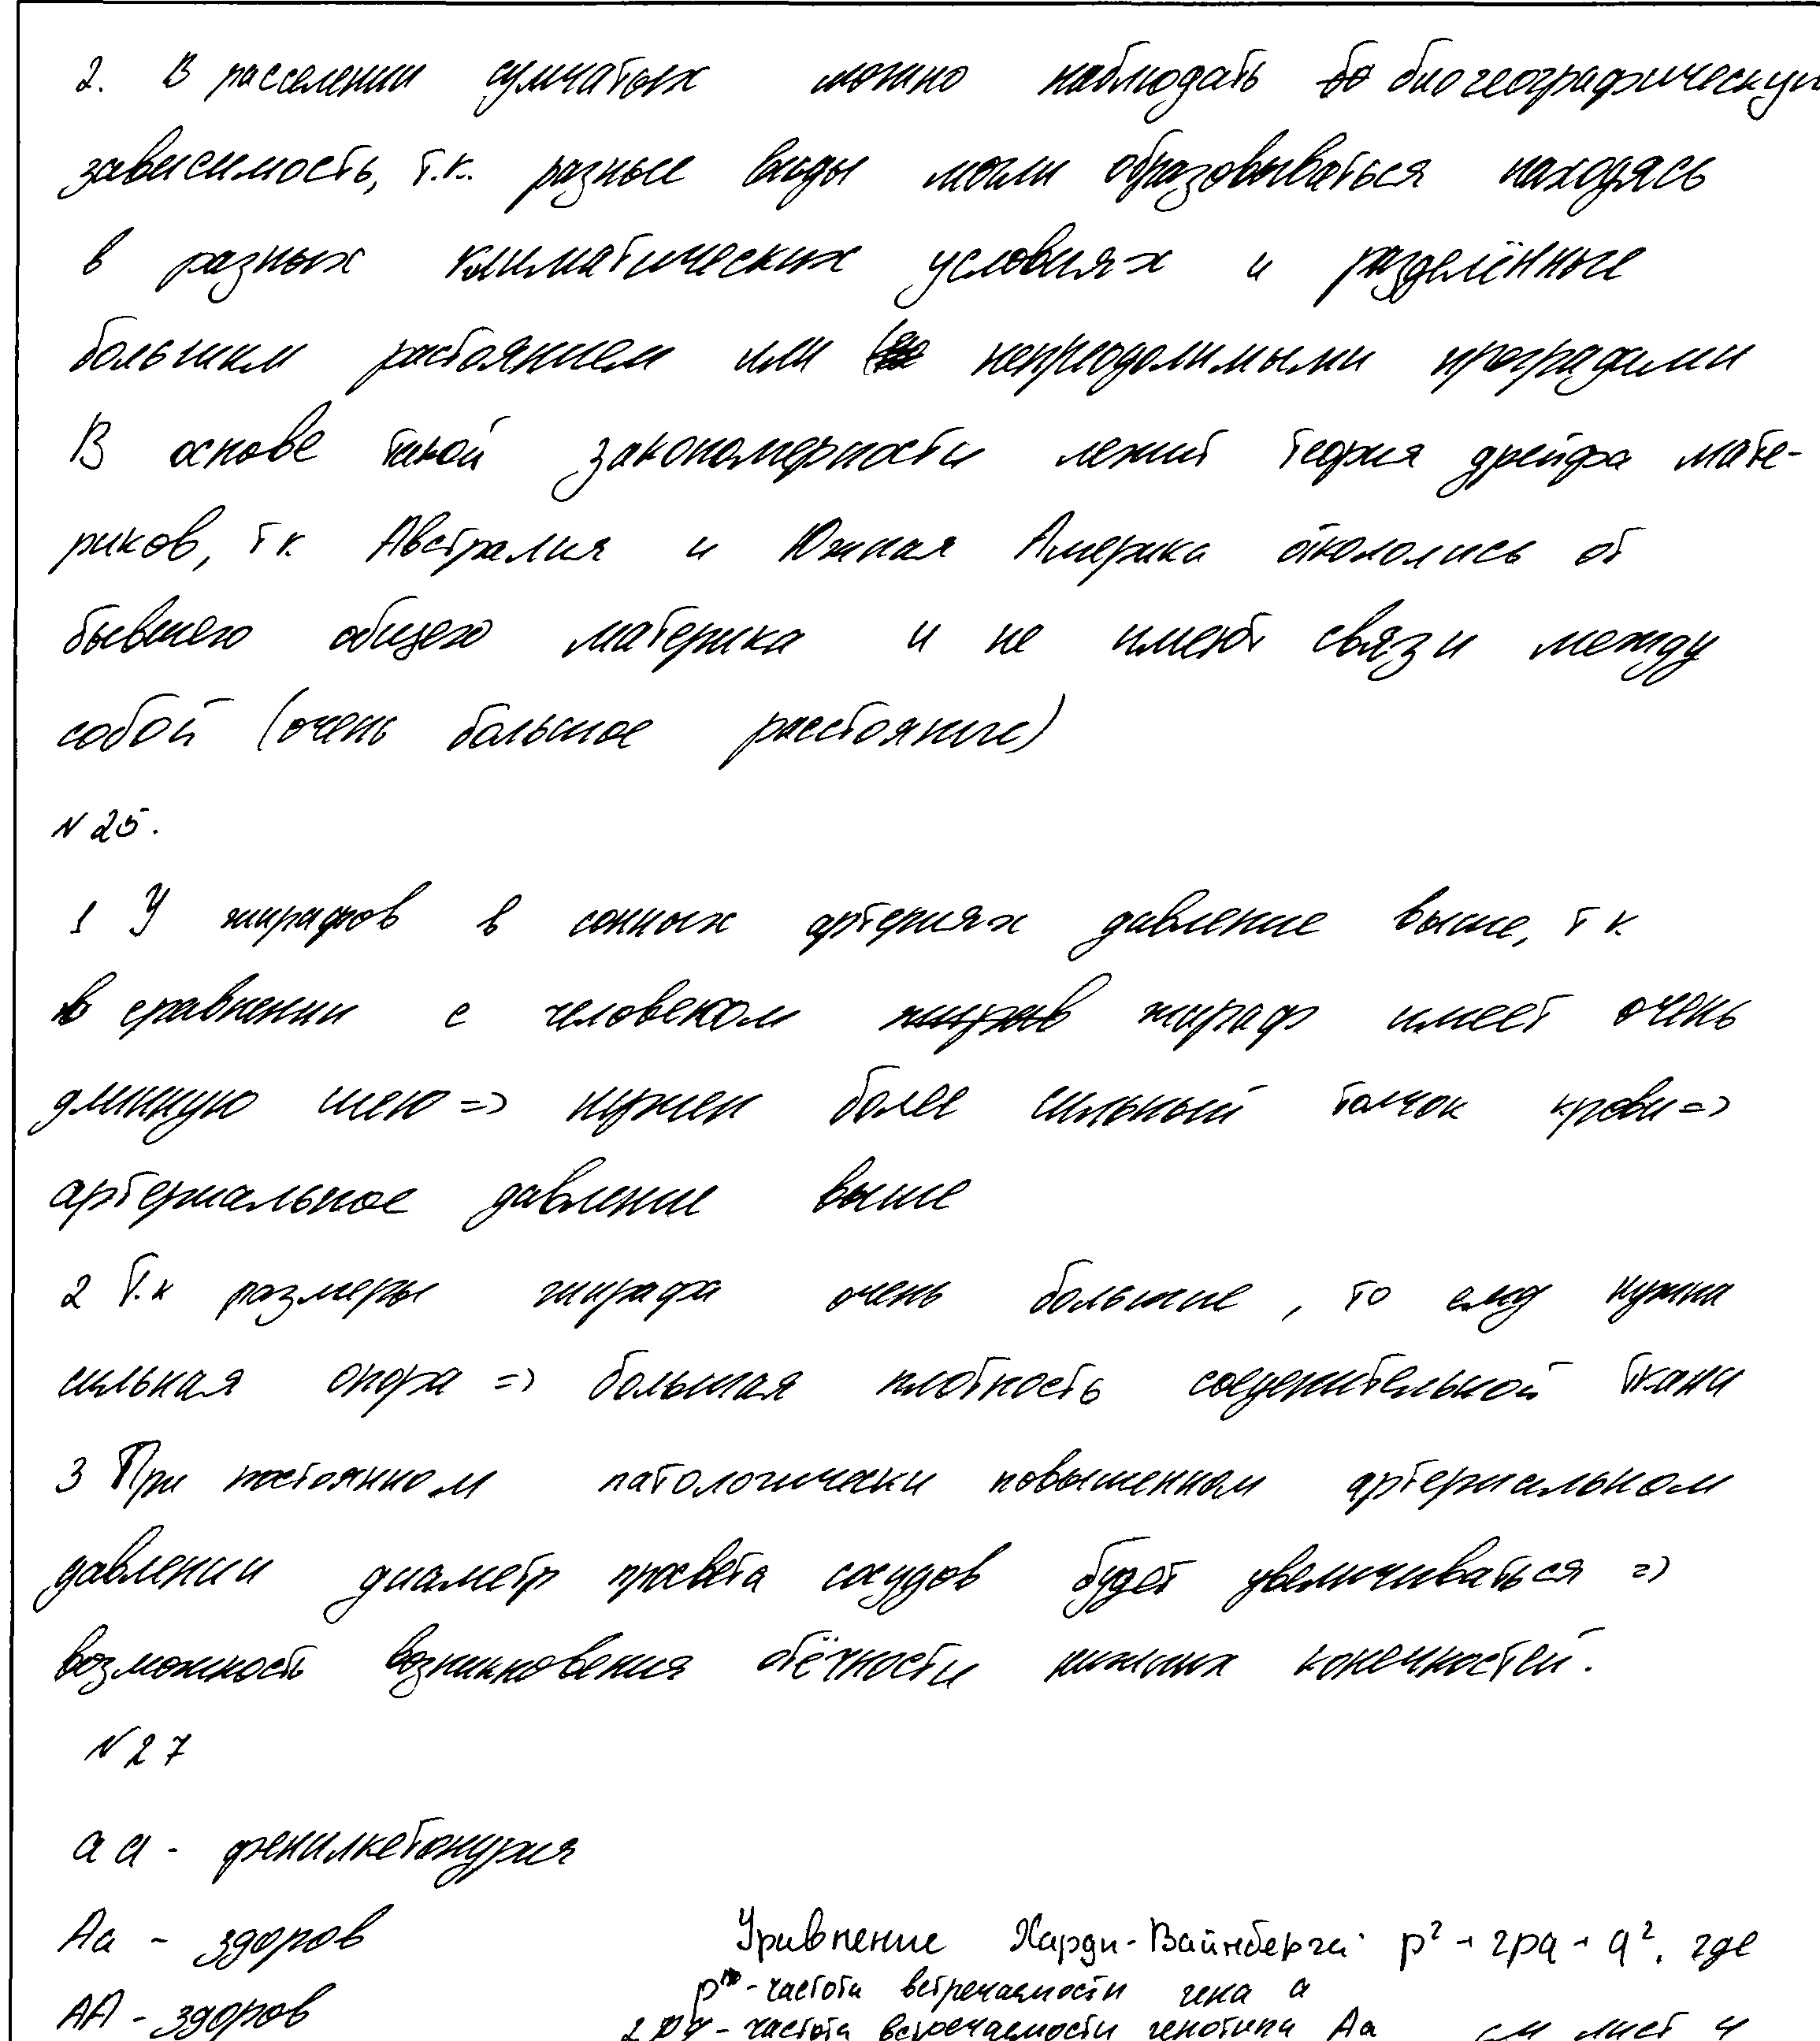 2. В расселении сумчатых можно наблюдать биогеографическую
зависимость, т.к. разные виды могли образовываться находясь
в разных климатических условиях и разделённые
большим растоянием или непреодолимыми преградами
В основе такой закономерности лежит теория дрейфа мате-
риков, т к. Австралия и Южная Америка откололись от
бывшего общего материка и не имеют связи между
собой (очень большое расстояние)
N 25.
1 У жирафов в сонных артериях давление выше, т к.
в сравнении с человеком жираф имеет очень
длинную шею => нужен более сильный толчок крови =>
артериальное давление выше
2 Т.к размеры жирафа очень большие, то ему нужна
сильная опора => большая плотность соединительной ткани
3 При постоянном патологически повышенном артериальном
давлении диаметр просвета сосудов будет увеличиваться =>
возможность возникновения отёчности нижних конечностей.
N 27
aa - фенилкетонурия
Aa - здоров
Уравнение Харди-Вайнберга: p² + 2pq + q², где
AA - здоров
p - частота встречаемости гена a
2pq - частота встречаемости генотипа Aa см лист 4